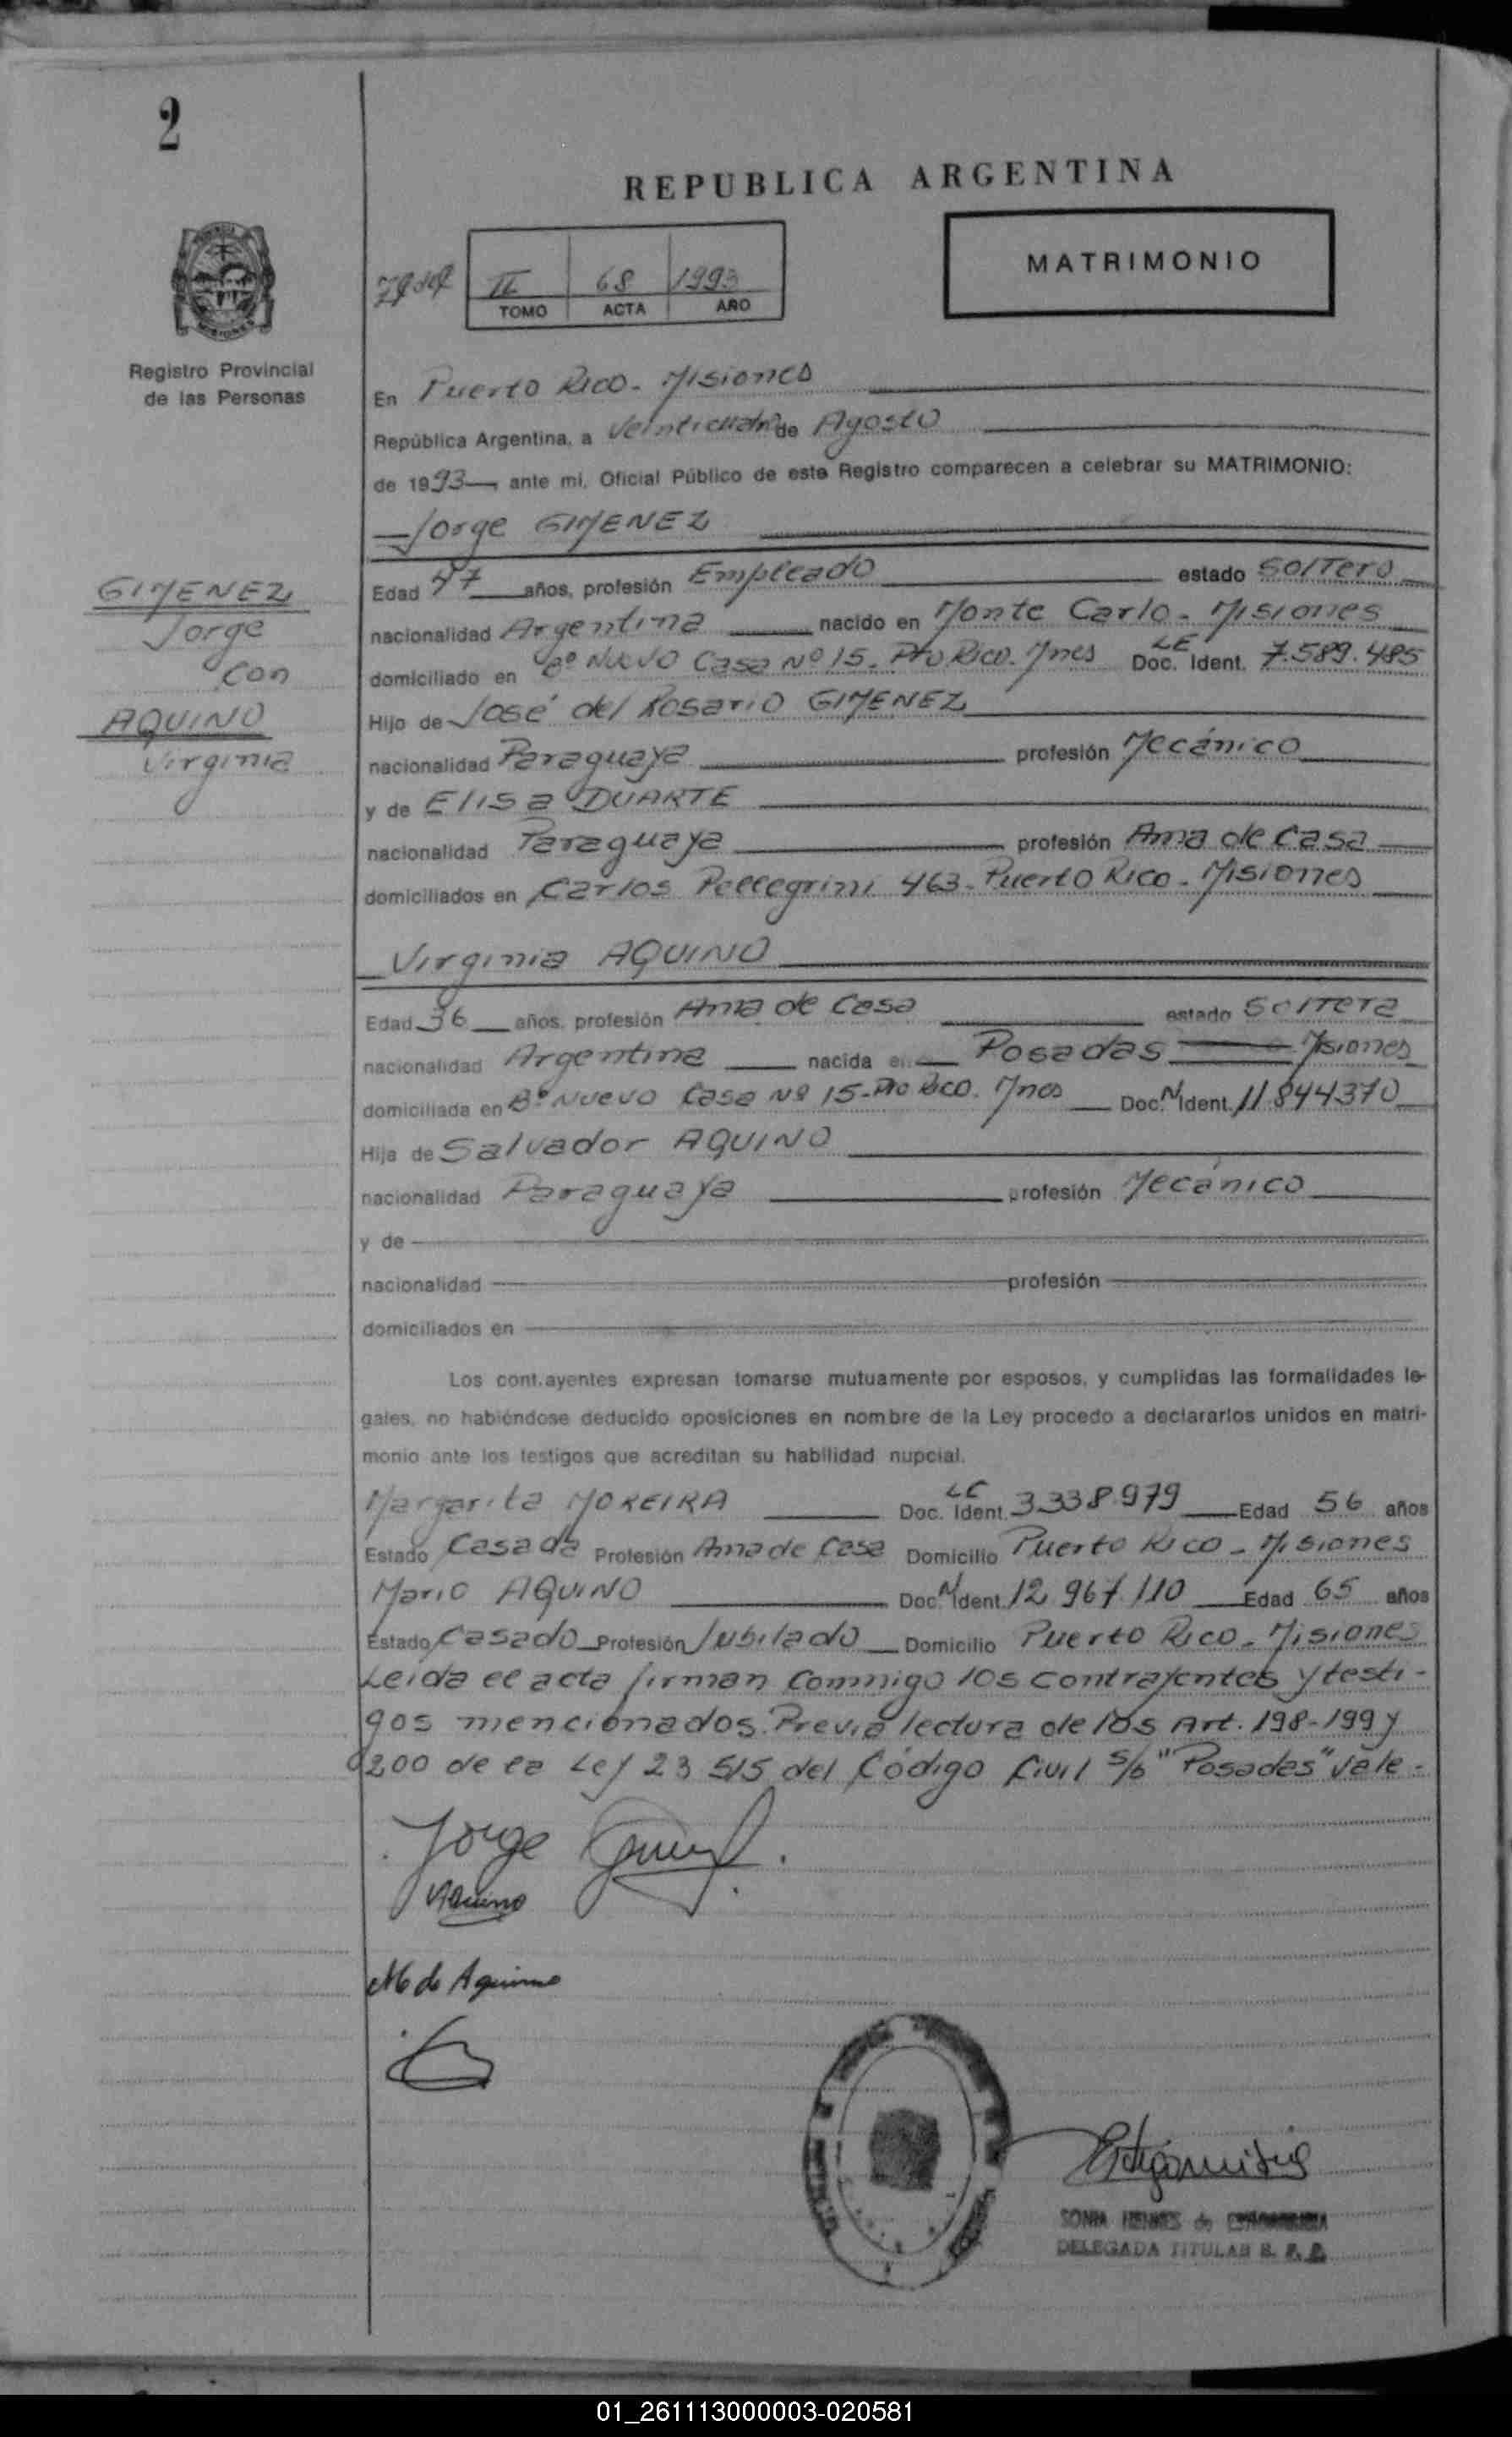 2
REPUBLICA ARGENTINA
MATRIMONIO
II 68 1993
TOMO ACTA AÑO
Registro Provincial
de las Personas
En Puerto Rico - Misiones
República Argentina, a Veinticuatro de Agosto
de 1993 ante mi, Oficial Público de este Registro comparecen a celebrar su MATRIMONIO:
Jorge GIMENEZ
GIMENEZ
Jorge
con
AQUINO
Virginia
Edad 47 años, profesión Empleado estado Soltero
nacionalidad Argentina nacido en Monte Carlo - Misiones
domiciliado en Bº Nuevo Casa Nº 15. Pto Rico. Mnes Doc. Ident. LE 7.589.485
Hijo de José del Rosario GIMENEZ
nacionalidad Paraguaya profesión Mecánico
y de Elisa DUARTE
nacionalidad Paraguaya profesión Ama de Casa
domiciliados en Carlos Pellegrini 463 - Puerto Rico - Misiones
Virginia AQUINO
Edad 36 años, profesión Ama de Casa estado Soltera
nacionalidad Argentina nacida en Posadas Misiones
domiciliada en Bº Nuevo Casa Nº 15 - Pto Rico. Mnes Doc. N Ident. 11.844370
Hija de Salvador AQUINO
nacionalidad Paraguaya profesión Mecánico
y de
nacionalidad profesión
domiciliados en
Los cont.ayentes expresan tomarse mutuamente por esposos, y cumplidas las formalidades le-
gales, no habiéndose deducido oposiciones en nombre de la Ley procedo a declararlos unidos en matri-
monio ante los testigos que acreditan su habilidad nupcial.
Margarita MOREIRA Doc. Ident. LC 3.338.979 Edad 56 años
Estado Casada Profesión Ama de Casa Domicilio Puerto Rico - Misiones
Mario AQUINO Doc. N Ident. 12 967.110 Edad 65 años
Estado Casado Profesión Jubilado Domicilio Puerto Rico - Misiones
Leida el acta firman conmigo los contrayentes y testi-
gos mencionados. Previa lectura de los Art. 198-199 y
200 de la Ley 23 515 del Código Civil s/b "Posadas" Vale -
Jorge
Aquino
M de Aquino
SONIA de
DELEGADA TITULAR R. P. P.
01_261113000003-020581